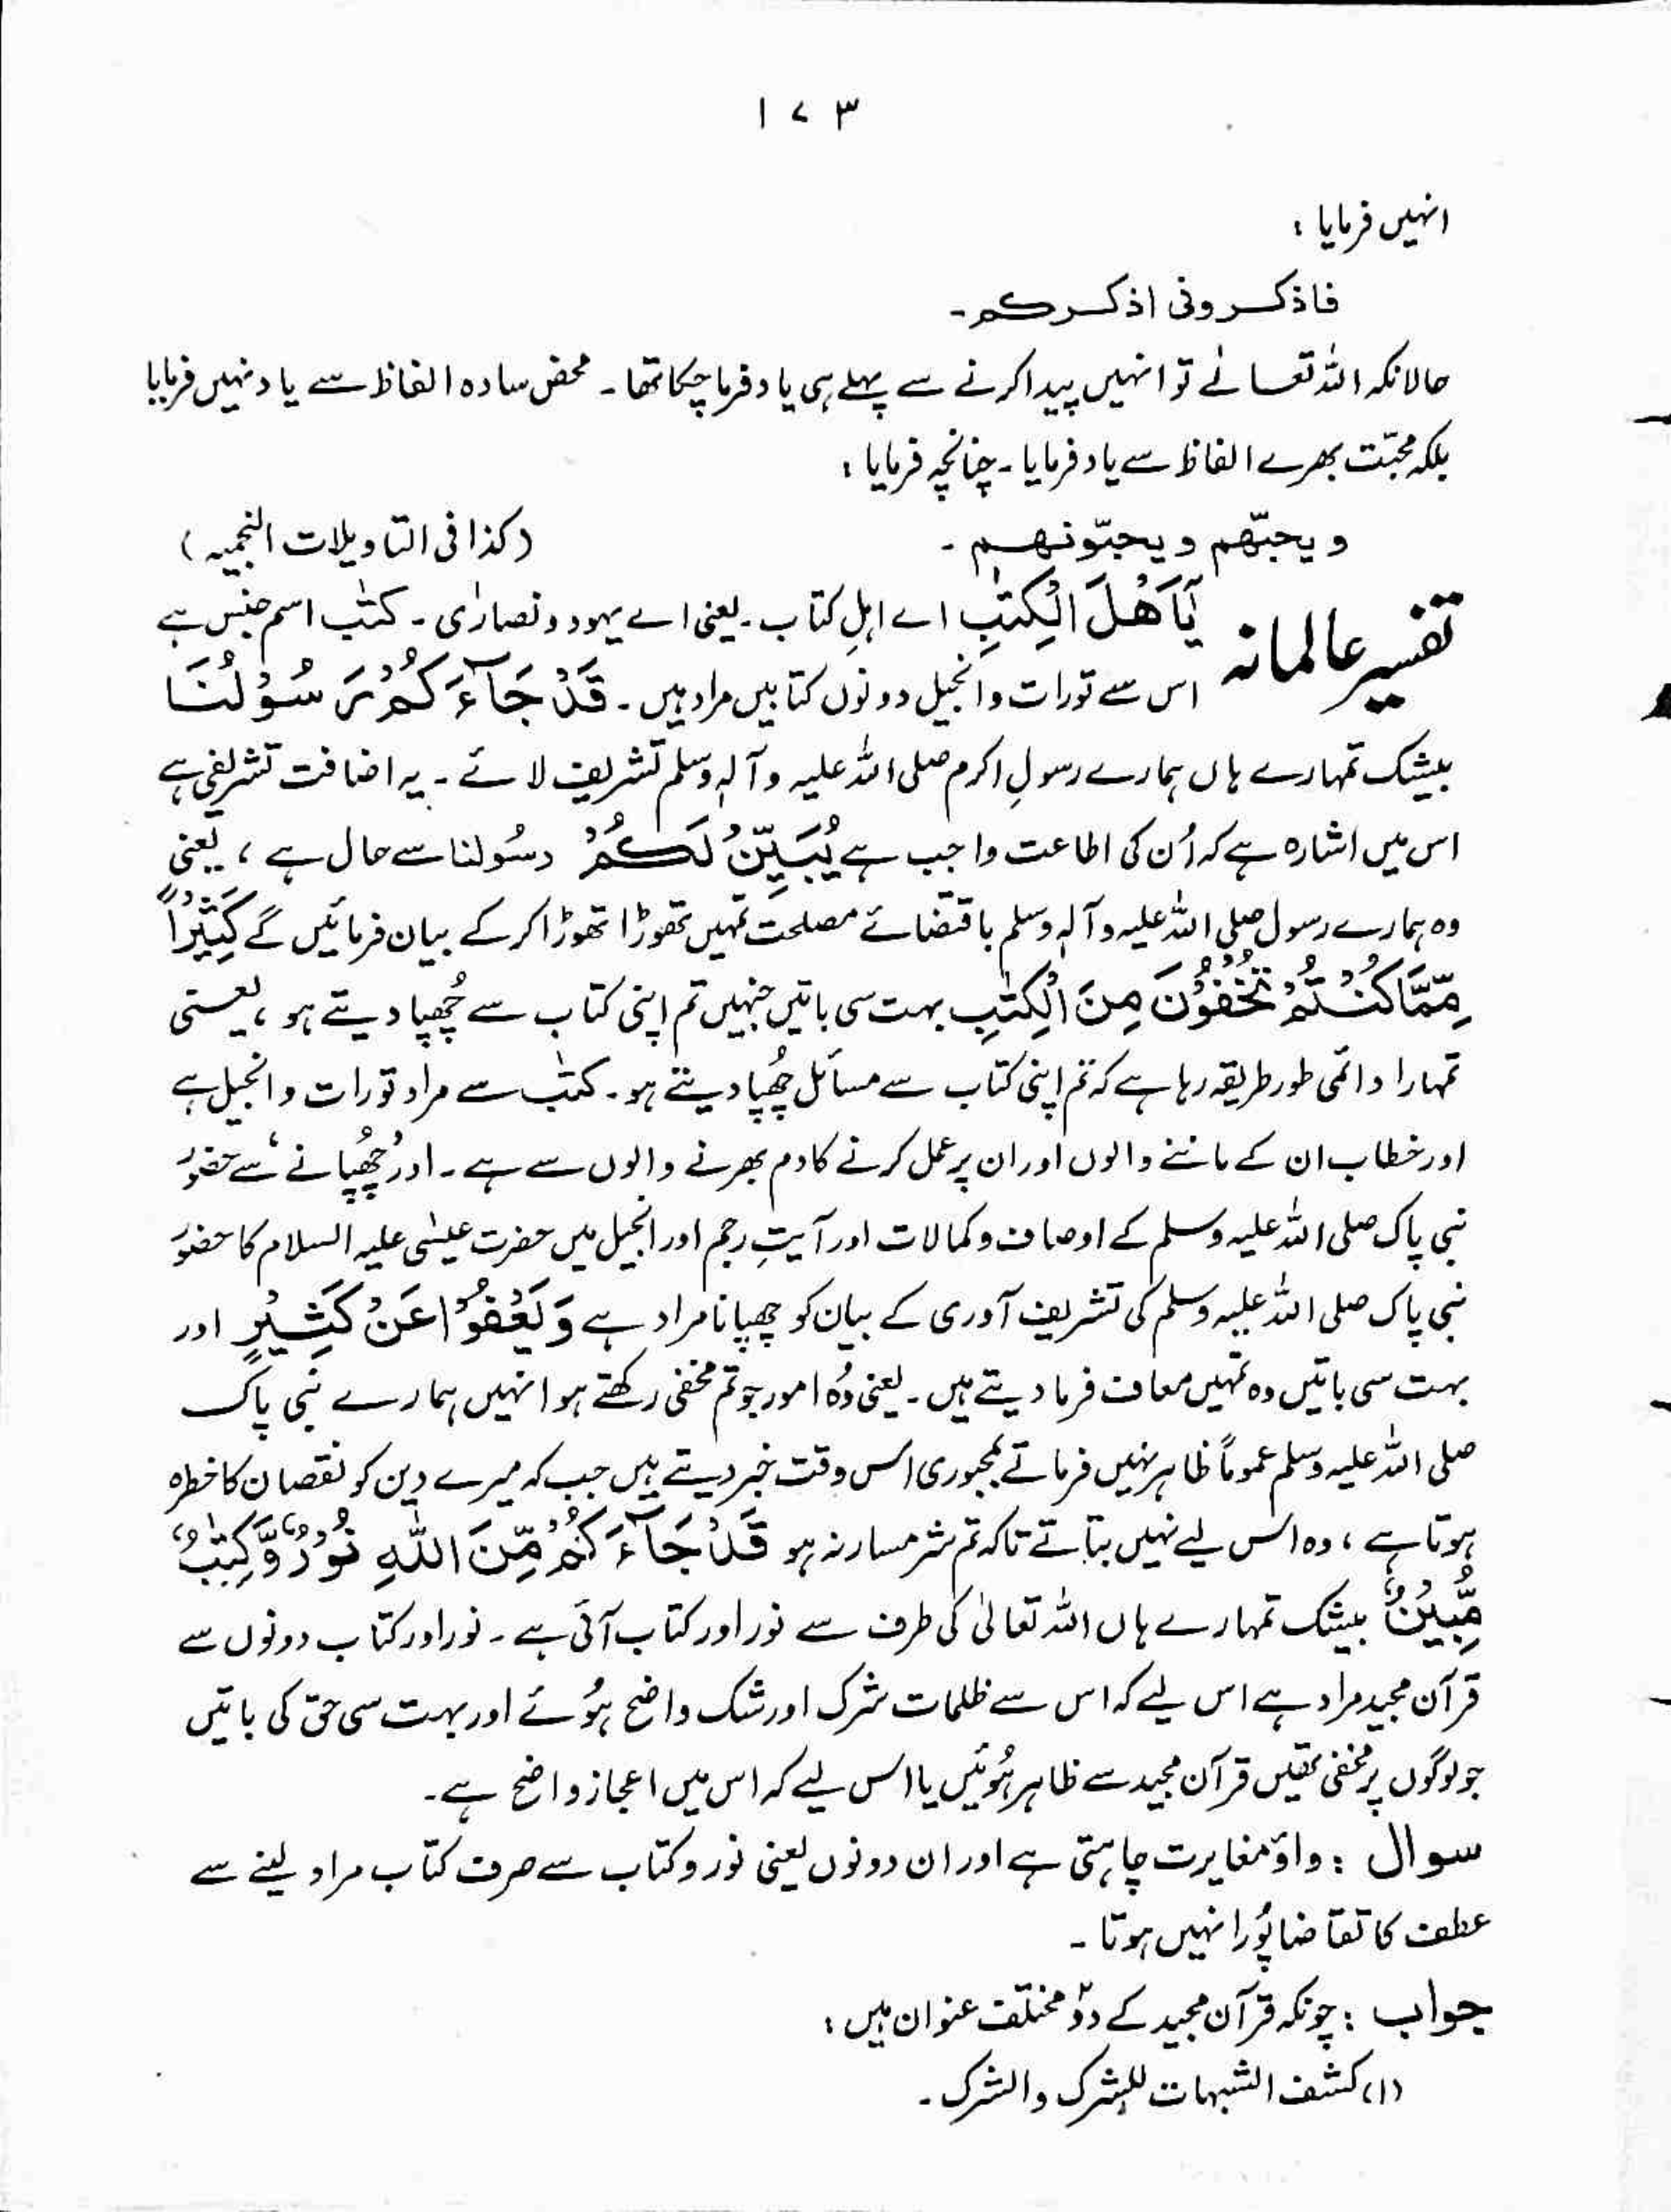 ۱۷۳
انہیں فرمایا :
فاذکرونی اذکرکم۔
حالانکہ اللہ تعالےٰ تو انہیں پیدا کرنے سے پہلے ہی یاد فرما چکا تھا۔ محض سادہ الفاظ سے یاد نہیں فرمایا
بلکہ محبّت بھرے الفاظ سے یاد فرمایا۔ چنانچہ فرمایا :
و یحبّھم و یحبّونھم۔ (کذا فی التاویلات النجمیہ)
تفسیر عالمانہ یٰٓاَھْلَ الْکِتٰبِ اے اہلِ کتاب۔ یعنی اے یہود و نصارٰی۔ کتٰب اسم جنس ہے
اس سے تورات و انجیل دونوں کتابیں مراد ہیں۔ قَدْ جَآءَکُمْ رَسُوْلُنَا
بیشک تمہارے ہاں ہمارے رسولِ اکرم صلی اللہ علیہ وآلہٖ وسلم تشریف لائے۔ یہ اضافت تشریفی ہے
اس میں اشارہ ہے کہ اُن کی اطاعت واجب ہے یُبَیِّنُ لَکُمْ رسُولنا سے حال ہے ، یعنی
وہ ہمارے رسول صلی اللہ علیہ وآلہٖ وسلم باقتضائے مصلحت تمہیں تھوڑا تھوڑا کر کے بیان فرمائیں گے کَثِیْرًا
مِّمَّا کُنْتُمْ تُخْفُوْنَ مِنَ الْکِتٰبِ بہت سی باتیں جنہیں تم اپنی کتاب سے چُھپا دیتے ہو ، یعنی
تمہارا دائمی طور طریقہ رہا ہے کہ تم اپنی کتاب سے مسائل چُھپا دیتے ہو۔ کتٰب سے مراد تورات و انجیل ہے
اور خطاب ان کے ماننے والوں اور ان پر عمل کرنے کا دم بھرنے والوں سے ہے۔ اور ’چُھپانے‘ سے حضور
نبی پاک صلی اللہ علیہ وسلم کے اوصاف و کمالات اور آیتِ رجم اور انجیل میں حضرت عیسٰی علیہ السلام کا حضور
نبی پاک صلی اللہ علیہ وسلم کی تشریف آوری کے بیان کو چھپانا مراد ہے وَ یَعْفُوْا عَنْ کَثِیْرٍ اور
بہت سی باتیں وہ تمہیں معاف فرما دیتے ہیں۔ یعنی وُہ امور جو تم مخفی رکھتے ہو انہیں ہمارے نبی پاک
صلی اللہ علیہ وسلم عموماً ظاہر نہیں فرماتے بمجبوری اس وقت خبر دیتے ہیں جب کہ میرے دین کو نقصان کا خطرہ
ہوتا ہے ، وہ اس لیے نہیں بتاتے تاکہ تم شرمسار نہ ہو قَدْ جَآءَکُمْ مِّنَ اللّٰہِ نُوْرٌ وَّ کِتٰبٌ
مُّبِیْنٌ بیشک تمہارے ہاں اللہ تعالیٰ کی طرف سے نور اور کتاب آئی ہے۔ نور اور کتاب دونوں سے
قرآن مجید مراد ہے اس لیے کہ اس سے ظلمات شرک اور شک واضح ہوُئے اور بہت سی حق کی باتیں
جو لوگوں پر مخفی تھیں قرآن مجید سے ظاہر ہُوئیں یا اس لیے کہ اس میں اعجاز واضح ہے۔
سوال : واؤ مغایرت چاہتی ہے اور ان دونوں یعنی نور و کتاب سے صرف کتاب مراد لینے سے
عطف کا تقاضا پُورا نہیں ہوتا۔
جواب : چونکہ قرآن مجید کے دوؔ مختلف عنوان ہیں :
(۱) کشف الشبہات للشرک والشرک۔